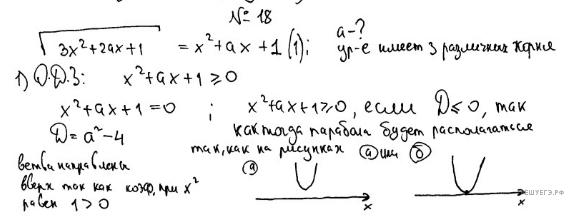 № 18
√3x²+2ax+1 = x²+ax+1 (1); a-?
ур-е имеет 3 различных корня
1) О.Д.З: x²+ax+1≥0
x²+ax+1=0 ; x²+ax+1≥0, если D≤0, так
D=a²-4
как тогда парабола будет располагаться
так, как на рисунках а или б
ветви направлены
вверх так как коэф. при x²
равен 1>0
а
x
б
x
РЕШУЕГЭ.РФ